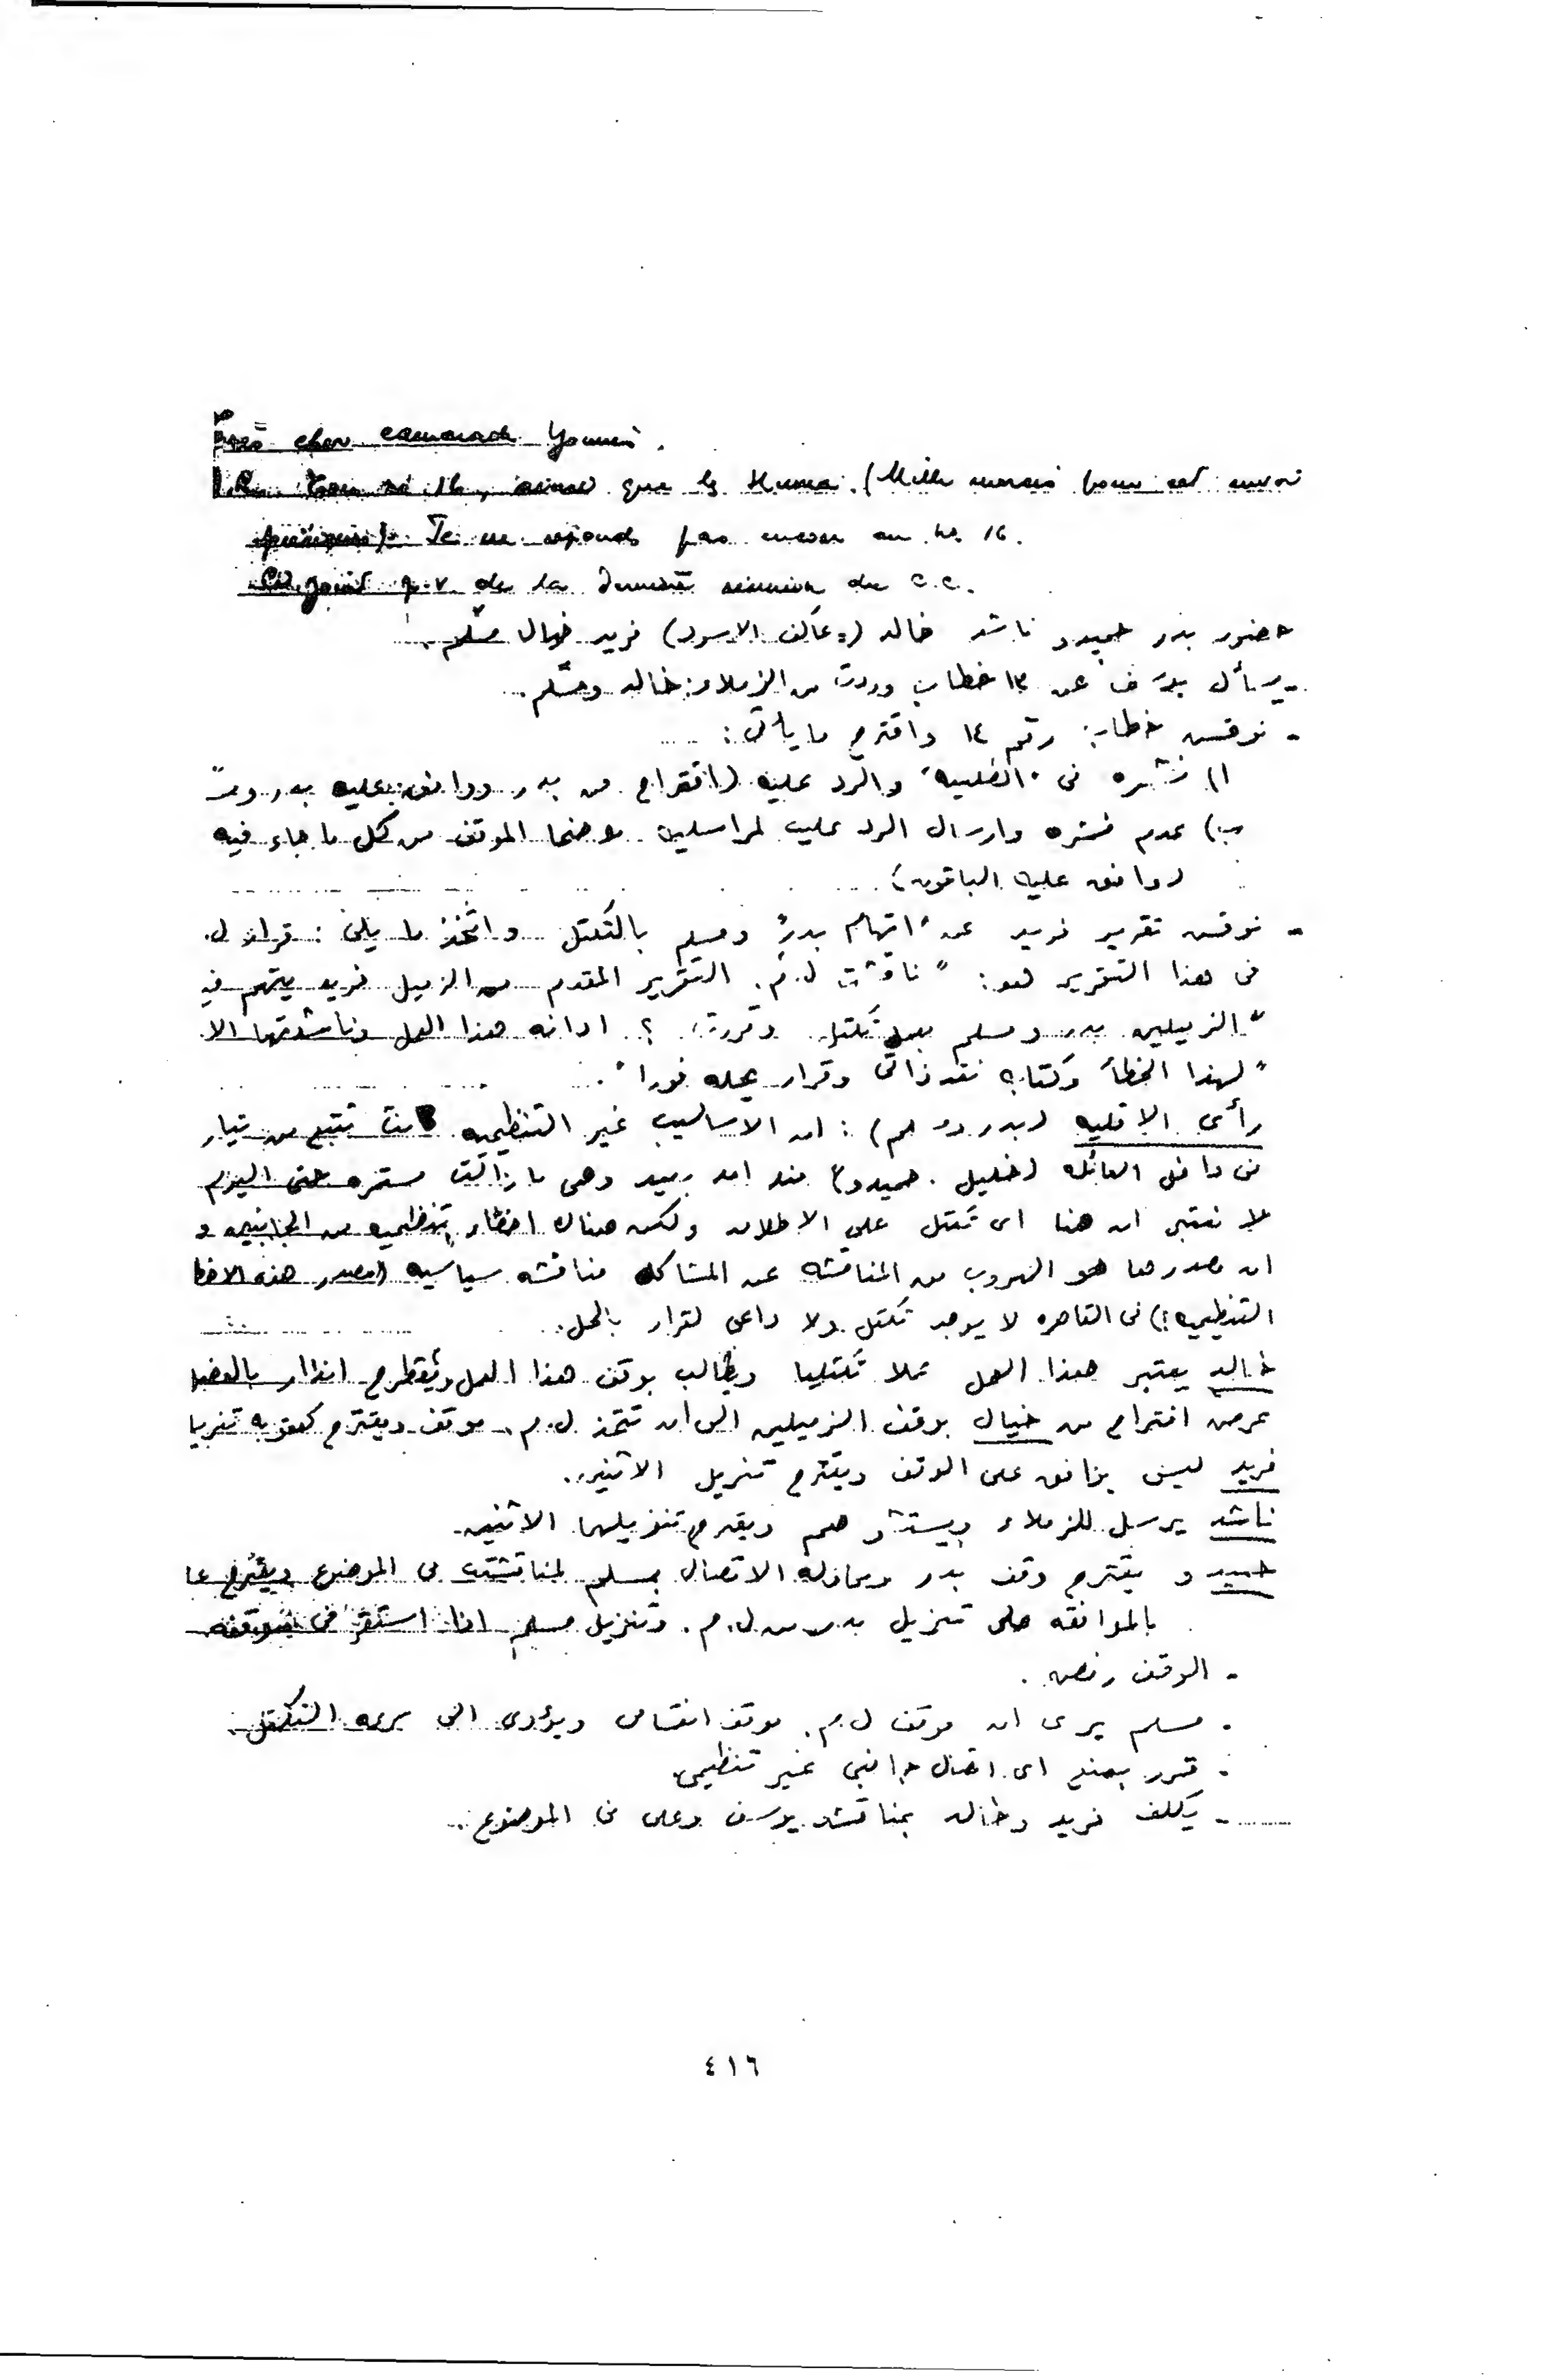 Très cher camarade Younes.
Reçu ton no 16, ainsi que les Huma. (Mille mercis pour cet envoi
précieux). Je ne réponds pas encore au no 16.
Ci-joint p.v. de la dernière réunion du C.C.
حضور بدر حميدو ناشد خالد (= عاكف الاسود) فريد خيال مسلم.
- يسأل عن ١٣ خطاب وردت من الزملاء: خالد ومسلم.
- نوقش خطاب رقم ١٤ واقترح ما يأتى:
ا) نشره فى "الطليبه" والرد عليه (اقتراح من بدر ووافق عليه بدر
ب) عدم نشره وارسال الرد عليه لمراسلين موضحا الموقف من كل ما جاء فيه
(وافق عليه الباقون)
- نوقش تقرير فريد عن "اتهام بدر" ومسلم بالتكتل واتخذ ما يلى: قرار ل.
فى هذا التقرير هو: " ناقشت ل.م. التقرير المقدم من الزميل فريد يتهم فيه
" الزميلين بدر ومسلم بعمل تكتل وقررت ؟. ادانه هذا العمل ومناشدتهما الا
" لهذا الخطأ وكتابه نقد ذاتى وقرار بحله فورا".
رأى الاقليه (بدر ومسلم): ان الاساليب غير التنظيميه كانت تتبع من تيار
من داخل العائله (خليل. حميدو) منذ امد بعيد وهى ما زالت مستمره حتى اليوم
لا نعتبر ان هنا اى تكتل على الاطلاق ولكن هناك اخطاء تنظيميه من الجانبين و
ان مصدرها هو الهروب من المناقشه عن المشاكل مناقشه سياسيه (مصدر هذه الاخطا
التنظيميه) فى القاهره لا يوجد تكتل ولا داعى لقرار بالحل.
خالد يعتبر هذا العمل عملا تكتليا ويطالب بوقف هذا العمل ويقترح انذار بالفصل
عرض اقتراح من خيال بوقف الزميلين الى ان تتخذ ل.م. موقف ويقترح كعقوبه تنزيلا
فريد ليس يوافق على الوقف ويقترح تنزيل الاثنين.
ناشد يرسل للزملاء ويستشارهم ويقترح تنزيلهما الاثنين
حميدو يقترح وقف بدر ومحاوله الاتصال بمسلم لمناقشته فى الموضوع ويقترح
بالموافقه على تنزيل بدر من ل.م. وتنزيل مسلم اذا استقر فى موقفه.
- الوقف رفض.
- مسلم يرى ان موقف ل.م. موقف انقسامى ويؤدى الى التكتل.
- قرر بمنع اى اتصال جانبى غير تنظيمى
- يكلف فريد وخالد بمناقشه يوسف وعلى فى الموضوع.
٤١٦